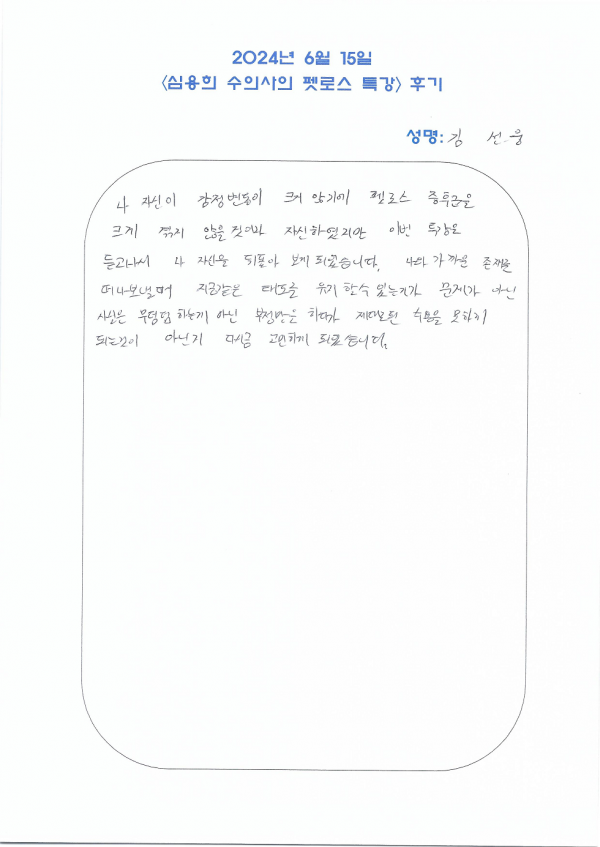 2024년 6월 15일
<심용희 수의사의 펫로스 특강> 후기
성명: 김 선웅
나 자신이 감정변동이 크지 않기에 펫로스 증후군을
크게 겪지 않을것이라 자신하였지만 이번 특강을
듣고나서 나 자신을 되돌아 보게 되었습니다. 나와 가까운 존재를
떠나보낼때 지금같은 태도를 유지 할수 있는지가 문제가 아닌
사실은 무덤덤 하는게 아닌 부정만을 하다가 제대로된 수용을 못하게
되는것이 아닌지 다시금 고민하게 되었습니다.